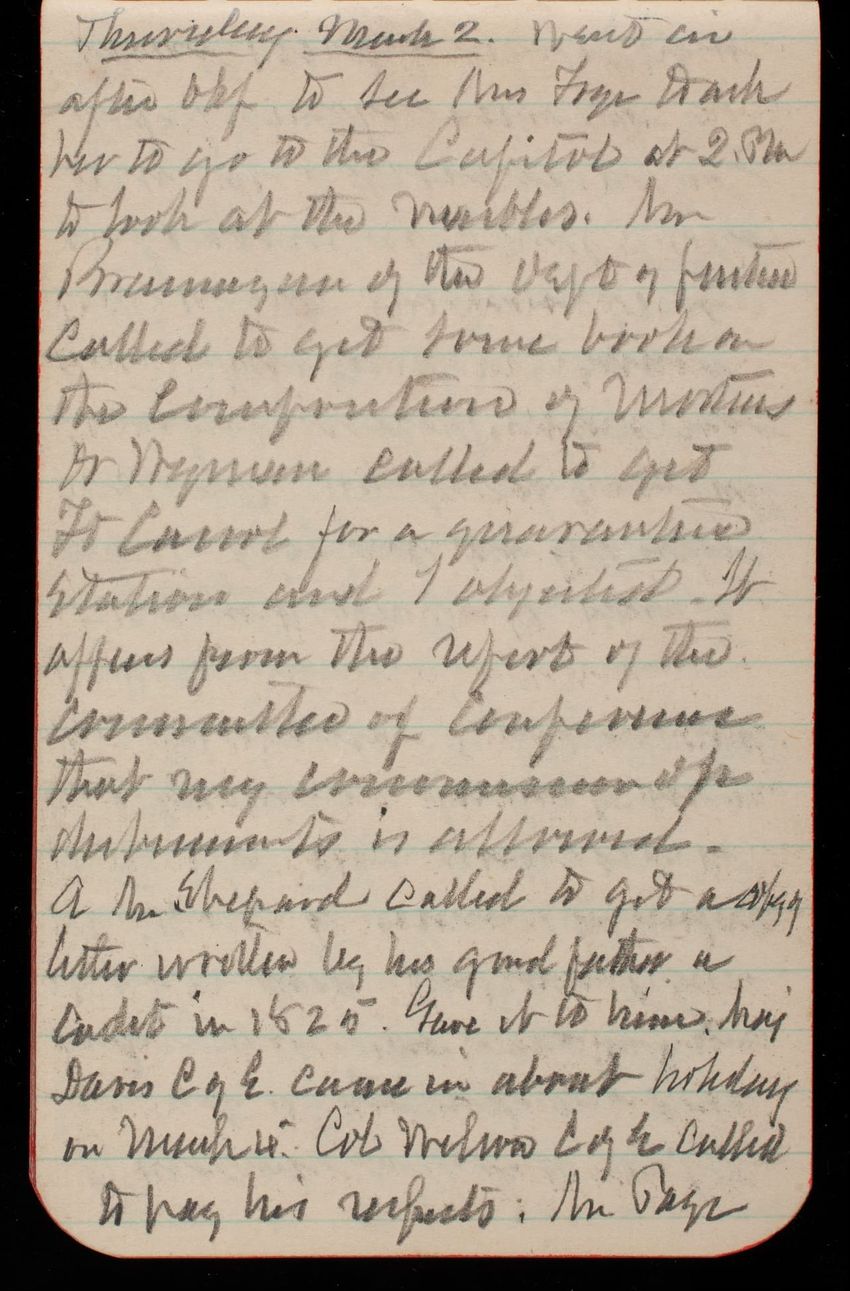 Thursday March 2. Went in
after bkf to see Mrs Frye to ask
her to go to the Capitol at 2 PM
to look at the marbles. Mr
of the Dept of Justice
Called to get some book on
the Composition of Mortars
Dr Wyman called to get
Ft Carrol for a quarantine
Station and I objected. It
appears from the report of the
Committee of Conference
that my commission
disbursements is allowed.
A Mr Shepard called to get a copy of
letter written by his grand father a
cadet in 1825. Gave it to him. Maj
Davis C of E. came in about holiday
on March 4. Col Wilson C of E called
to pay his respects. Mr Page